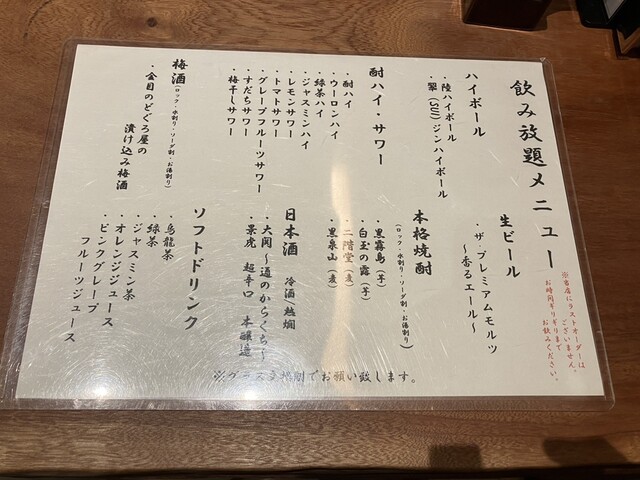 飲み放題メニュー
※当店にラストオーダーは
ございません。
お時間ギリギリまで
お飲みください。
生ビール
・ザ・プレミアムモルツ
～香るエール～
ハイボール
・陸ハイボール
・翠(SUI)ジンハイボール
本格焼酎
(ロック・水割り・ソーダ割・お湯割り)
・黒霧島(芋)
・白玉の露(芋)
・二階堂(麦)
・黒泉山(麦)
酎ハイ・サワー
・酎ハイ
・ウーロンハイ
・緑茶ハイ
・ジャスミンハイ
・レモンサワー
・トマトサワー
・グレープフルーツサワー
・すだちサワー
・梅干しサワー
日本酒 冷酒/熱燗
・大関～通のからくち～
・景虎 超辛口 本醸造
梅酒
(ロック・水割り・ソーダ割・お湯割り)
・金目のどぐろ屋の
漬け込み梅酒
ソフトドリンク
・烏龍茶
・緑茶
・ジャスミン茶
・オレンジジュース
・ピンクグレープ
フルーツジュース
※グラス交換制でお願い致します。